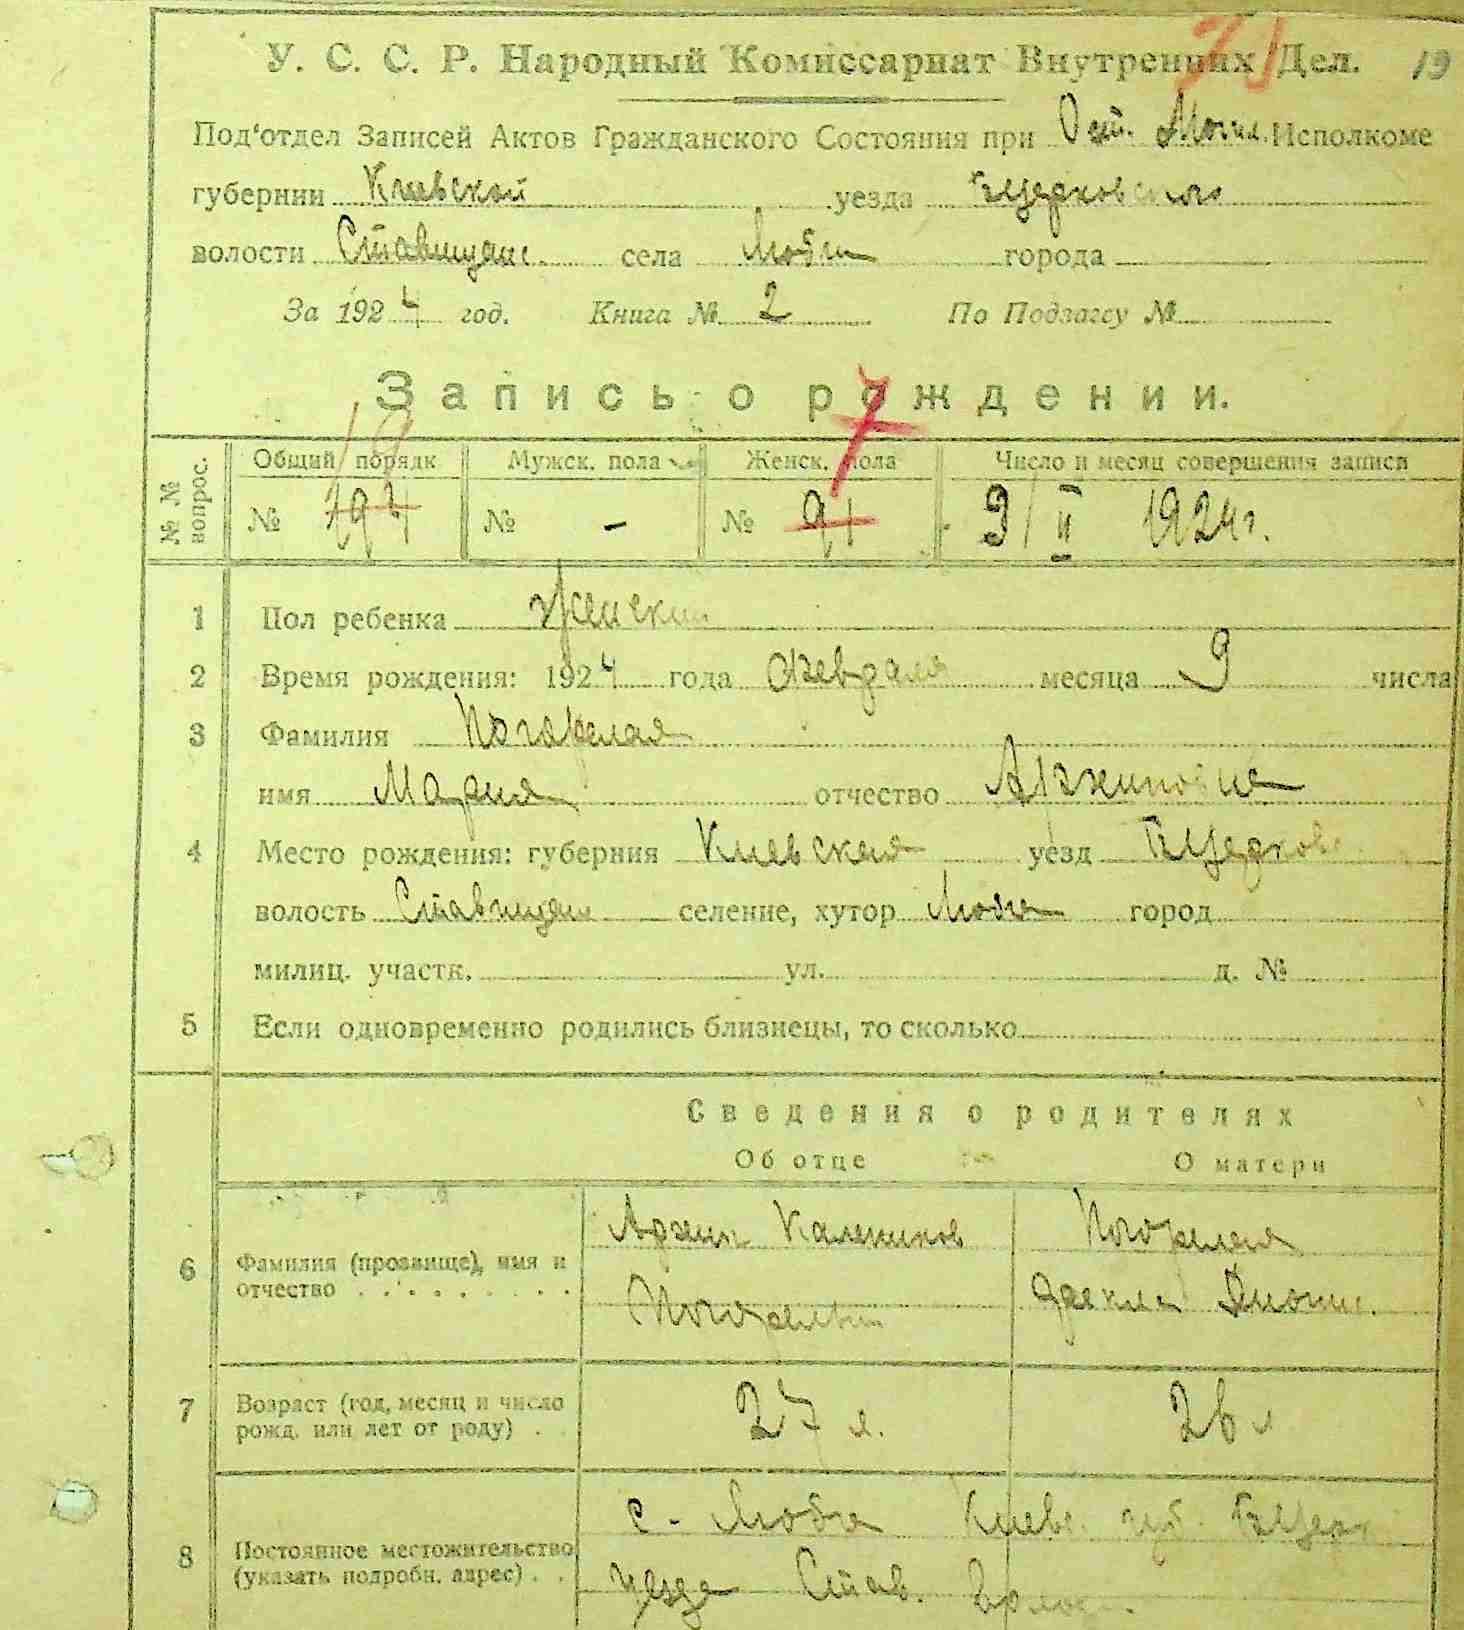 У. С. С. Р. Народный Комиссариат Внутренних Дел. 19
Под'отдел Записей Актов Гражданского Состояния при Ост. Могил. Исполкоме
губернии Киевской уезда БЦерковского
волости Ставищанс. села Люби города
За 1924 год. Книга № 2 По Подзагсу №
Запись о рождении.
№ № вопрос. Общий порядк Мужск. пола Женск. пола Число и месяц совершения записи
№ № - № 91 7 9/II 1924 г.
1 Пол ребенка Женский
2 Время рождения: 1924 года февраля месяца 9 числа
3 Фамилия Погорелая
имя Мария отчество Архиповна
4 Место рождения: губерния Киевская уезд БЦерков.
волость Ставищан селение, хутор Люба город
милиц. участк. ул. д. №
5 Если одновременно родились близнецы, то сколько
Сведения о родителях
Об отце О матери
6 Фамилия (прозвище), имя и отчество Архип Калеников Погорелый Погорелая
7 Возраст (год, месяц и число рожд. или лет от роду) 27 л. 26 л
8 Постоянное местожительство (указать подробн. адрес) с. Люба Киевс. губ. БЦерк
уезда Став. волос.